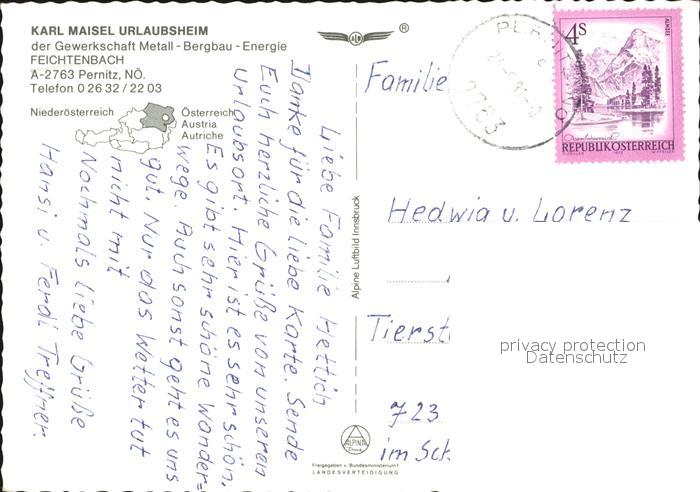 KARL MAISEL URLAUBSHEIM
der Gewerkschaft Metall - Bergbau - Energie
FEICHTENBACH
A-2763 Pernitz, NÖ.
Telefon 0 26 32 / 22 03
Niederösterreich
Österreich
Austria
Autriche
Liebe Familie Hettich
Danke für die liebe Karte. Sende
Euch herzliche Grüße von unseren
Urlaubsort. Hier ist es sehr schön.
Es gibt sehr schöne Wander-
wege. Auch sonst geht es uns
gut. Nur das Wetter tut
nicht mit
Nochmals liebe Grüße
Hansi u. Ferdl
Alpine Luftbild Innsbruck
ALPINE
Freigegeben v. Bundesministerium f.
LANDESVERTEIDIGUNG
®
2763
4S
ALMSEE
REPUBLIK ÖSTERREICH
Familie
Hedwig u. Lorenz
Tierst
723
im Sch
privacy protection
Datenschutz